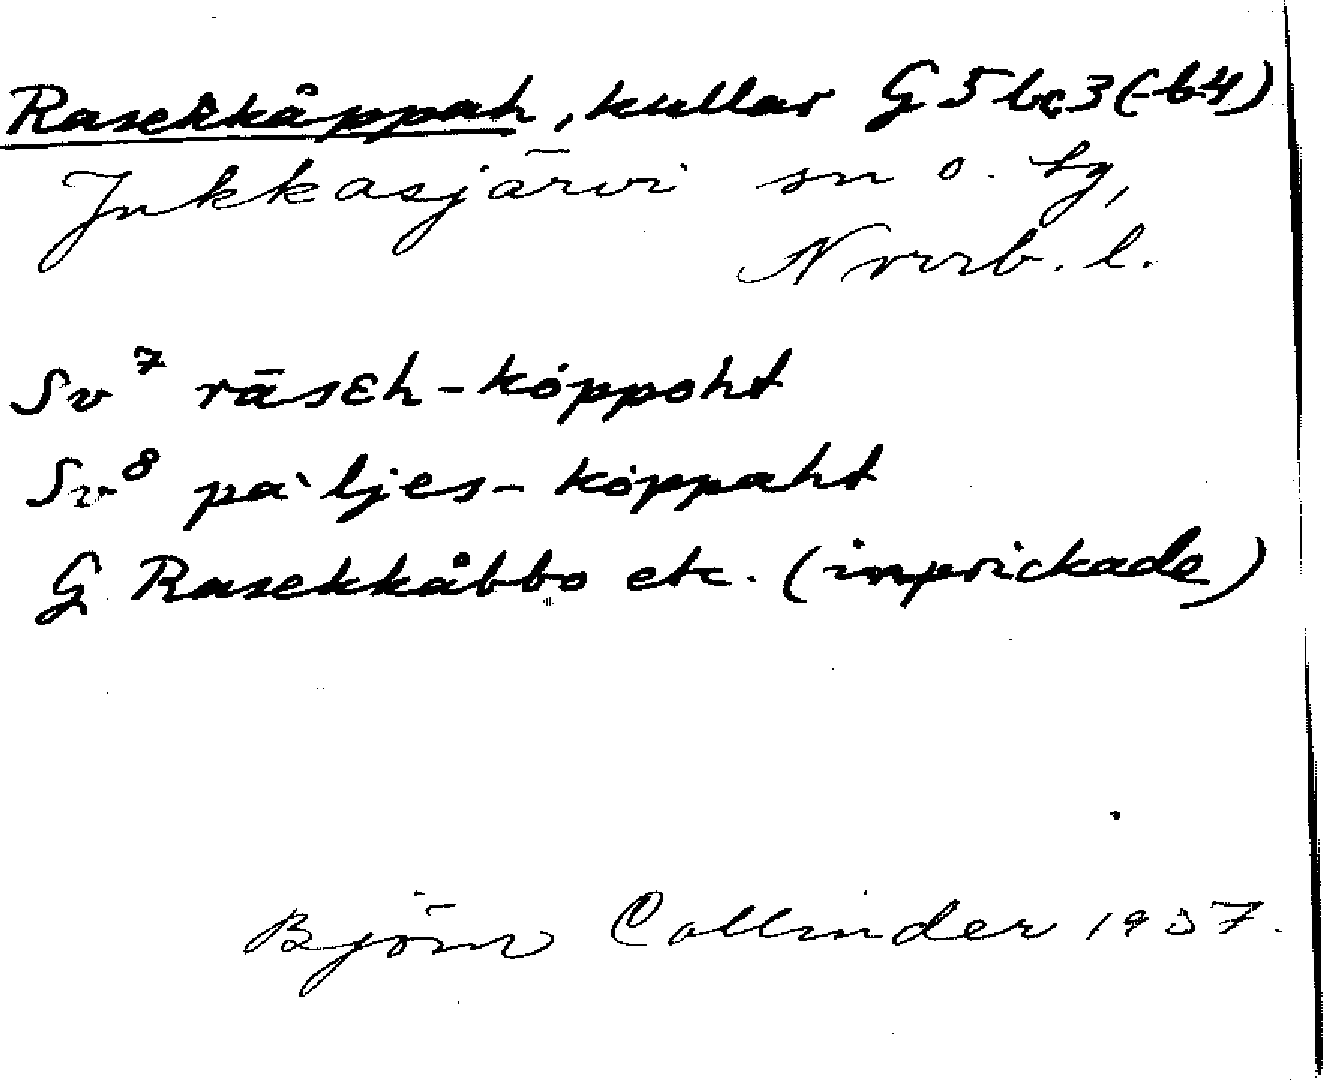 Rasekkåppah, kullar G 5 bc3 (-b4)
Jukkasjärvi sn o. tg,
Norrb. l.
Sv⁷ rāsɛh-kóppoht
Sv⁸ pa`ljes-kóppaht
G Rasekkåbbo etc. (inprickade)
Björn Collinder 1957.